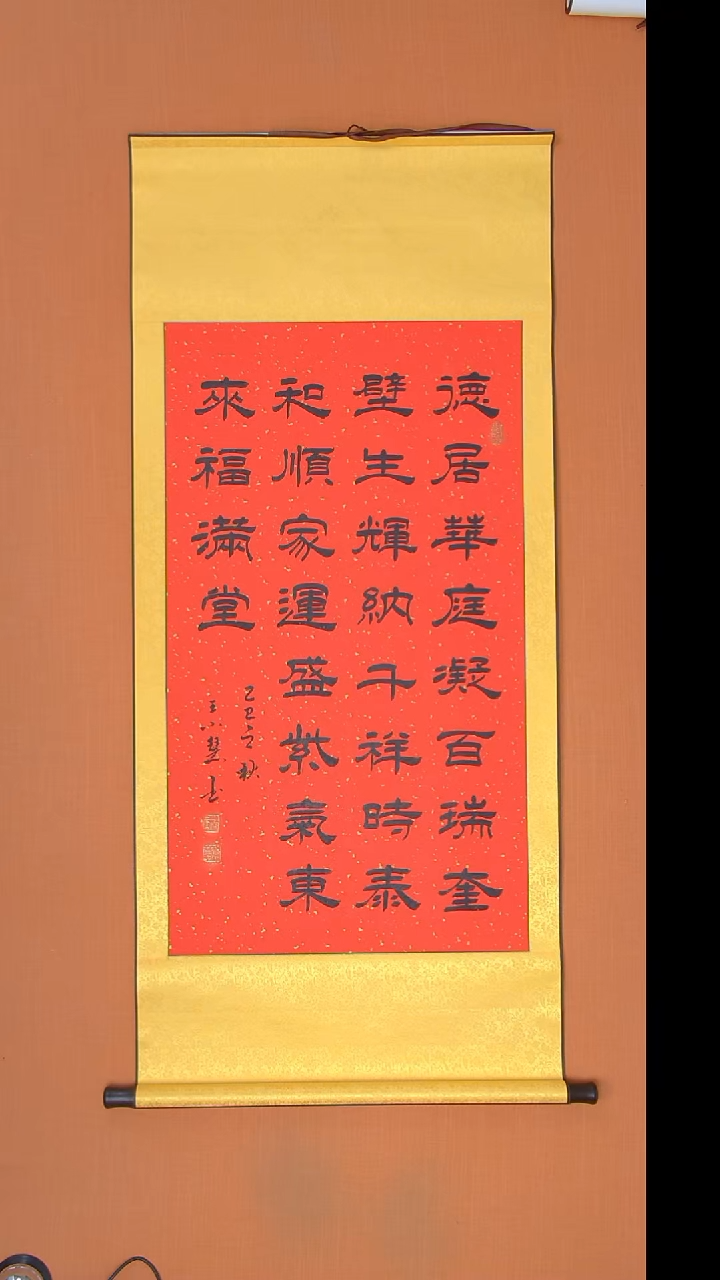 德居華庭凝百瑞奎
壁生輝納千祥時泰
和順家運盛紫氣東
來福滿堂
己丑之秋
王小慧書